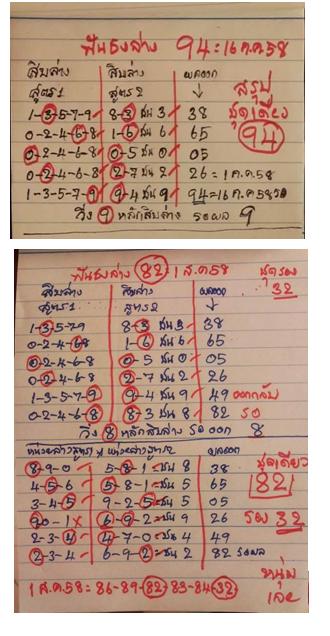 ฟันธงล่าง 94 = 16 ก.ค 58
สิบล่าง สิบล่าง ผลออก
สูตร 1 สูตร 2 ↓ สรุป
1-3-5-7-9 8-3 ชน 3 38 ชุดเดียว
0-2-4-6-8 1-6 ชน 6 65 94
0-2-4-6-8 0-5 ชน 0 05
0-2-4-6-8 2-7 ชน 2 26 = 1 ก.ค.58
1-3-5-7-9 9-4 ชน 9 94 = 16 ก.ค 58
วิ่ง 9 หลักสิบล่าง รอผล 9
ฟันธงล่าง 82 1 ส.ค 58 ชุดรอง
32
สิบล่าง สิบล่าง ผลออก
สูตร 1 สูตร 2 ↓
1-3-5-7-9 8-3 ชน 3 38
0-2-4-6-8 1-6 ชน 6 65
0-2-4-6-8 0-5 ชน 0 05
0-2-4-6-8 2-7 ชน 2 26
1-3-5-7-9 9-4 ชน 9 49 ออกกลับ
0-2-4-6-8 8-3 ชน 8 82 รอ
วิ่ง 8 หลักสิบล่าง รอ ออก 8
หน่วยล่าง ผลออก
8-9-0 5-8-1 = ชน 8 38 ชุดเดียว
4-5-6 5-8-1 = ชน 5 65 82
3-4-5 9-2-5 = ชน 5 05
9-0-1 x 6-9-2 = ชน 9 26 รอง 32
2-3-4 4-7-0 = ชน 4 49
2-3-4 6-9-2 = ชน 2 82 รอผล
หนุ่ม
1 ส.ค 58 = 86-89-82-83-84-32 เลย